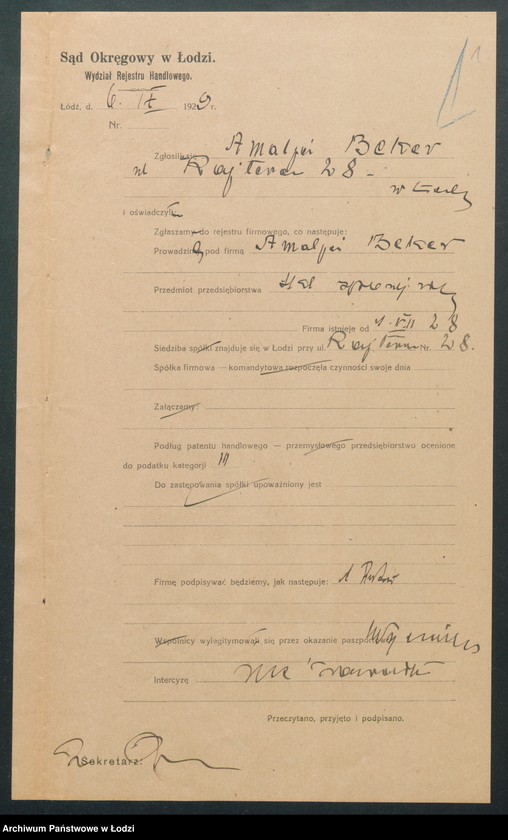 Sąd Okręgowy w Łodzi.
Wydział Rejestru Handlowego.
Łódź, d. 6. IX 1929 r.
Nr.
Zgłosili się Beker
ul 28 -
w Łodzi
i oświadczyli
Zgłaszamy do rejestru firmowego, co następuje:
Prowadzimy pod firmą Beker
Przedmiot przedsiębiorstwa
Firma istnieje od 1. VII 28
Siedziba spółki znajduje się w Łodzi przy ul. Nr. 28.
Spółka firmowa — komandytowa rozpoczęła czynności swoje dnia
Załączamy:
Podług patentu handlowego — przemysłowego przedsiębiorstwo ocenione
do podatku kategorji III
Do zastępowania spółki upoważniony jest
Firmę podpisywać będziemy, jak następuje:
Wspólnicy wylegitymowali się przez okazanie paszportów
Intercyzę nie
Przeczytano, przyjęto i podpisano.
Sekretarz:
Archiwum Państwowe w Łodzi